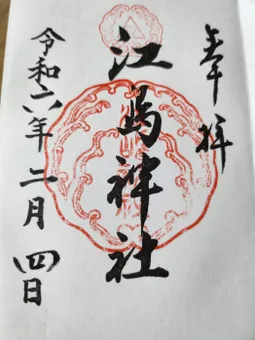 奉拝
江島神社
令和六年二月四日